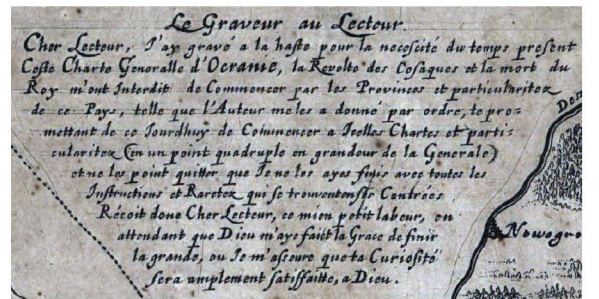 Le Graveur au Lecteur.
Cher Lecteur, J'ay gravé a la haste pour la necesçité du temps present
Ceste Charte Generalle d'Ocranie, la Revolte des Cosaques et la mort du
Roy m'ont Interdit de Commencer par les Provinces et particularitez
de ce Pays, telle que l'Auteur me les a donné par ordre, te pro-
mettant de ce Jourdhuy de Commencer a Icelles Chartes et parti-
cularitez (en un point quadruple en grandeur de la Generale)
et ne les point quitter que Je ne les ayes finis avec toutes les
Instructions et Raretez qui se trouvent en ses Contrées
Reçoit donc Cher Lecteur, ce mien petit labeur, en
attendant que Dieu m'aye faict la Grace de finir
la grande, ou Je m'asseure que ta Curiosité
sera amplement satisfaitte, a Dieu.
Nowogro